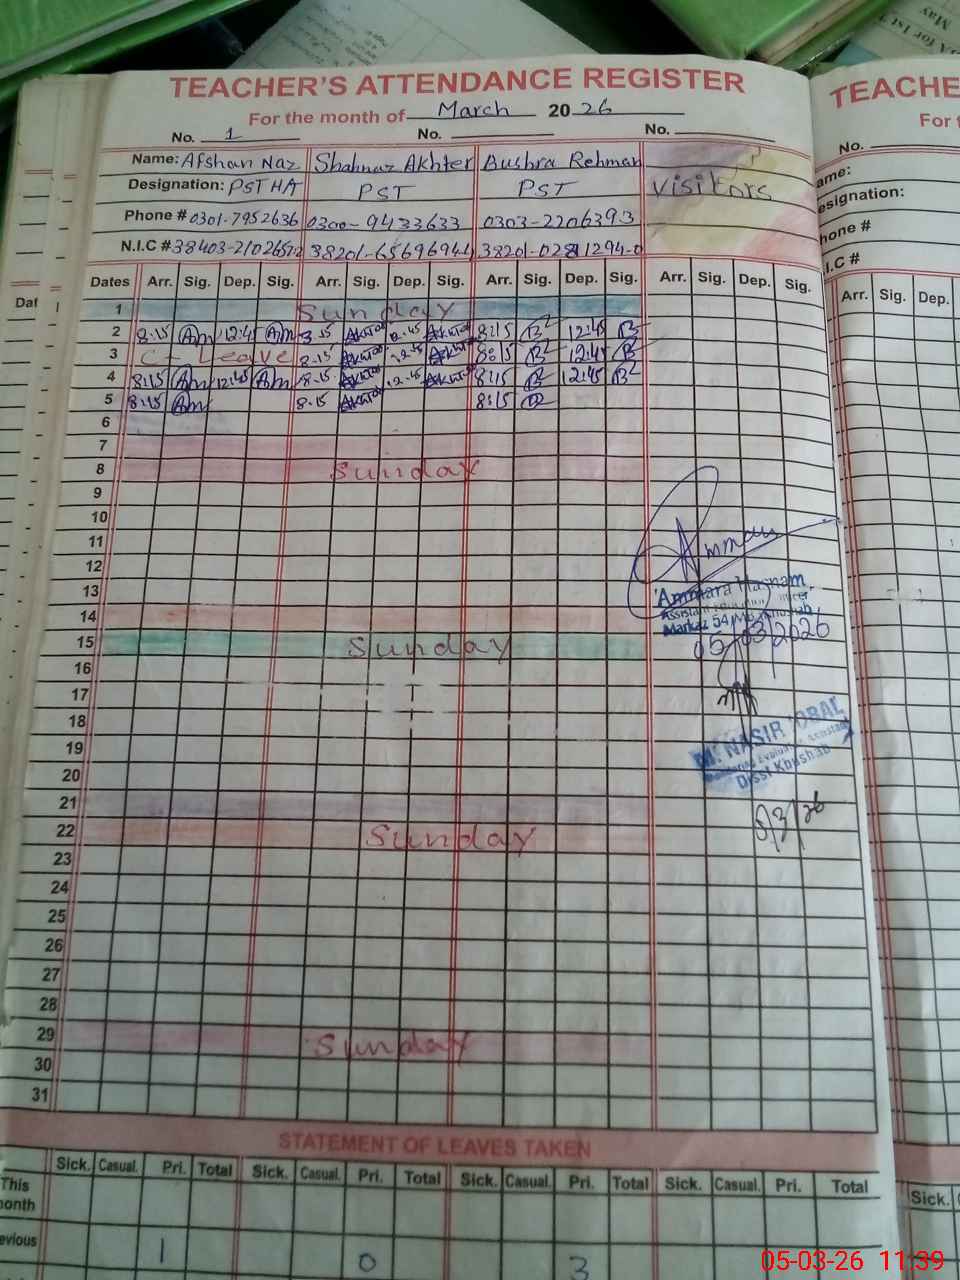 TEACHER'S ATTENDANCE REGISTER
For the month of March 2026
No. 1 No. No.
Name: Afshan Naz Shahnaz Akhter Bushra Rehman
Designation: PST HT PST PST Visitors
Phone # 0301-7952636 0300-9433633 0303-2206393
N.I.C #
Dates Arr. Sig. Dep. Sig. Arr. Sig. Dep. Sig. Arr. Sig. Dep. Sig. Arr. Sig. Dep. Sig.
1 Sunday
2 8:15 Am 12:45 Am 8.15 Akhtar 12.45 Akhtar 8:15 B 12:45 B
3 Leave 8.15 Akhtar 12.45 Akhtar 8:15 B 12:45 B
4 8:15 Am 12:45 Am 8.15 Akhtar 12.45 Akhtar 8:15 B 12:45 B
5 8:15 Am 8.15 Akhtar 8:15 B
6
7
8 Sunday
9
10
11
Ammara
12
13
Ammara
Assistant Education Officer
14
Markaz 54
15 Sunday
05/03/2026
16
17
18
M. NASIR IQBAL
19
Monitoring Evaluation Assistant
20
Khushab
21
5/3/26
22 Sunday
23
24
25
26
27
28
29 Sunday
30
31
STATEMENT OF LEAVES TAKEN
Sick. Casual. Pri. Total Sick. Casual. Pri. Total Sick. Casual. Pri. Total Sick. Casual. Pri. Total
This
onth
evious
1 0 3
TEACHE
For t
No.
ame:
esignation:
hone #
I.C #
Arr. Sig. Dep.
Sick.
Dat
A for 1st
May
05-03-26 11:39